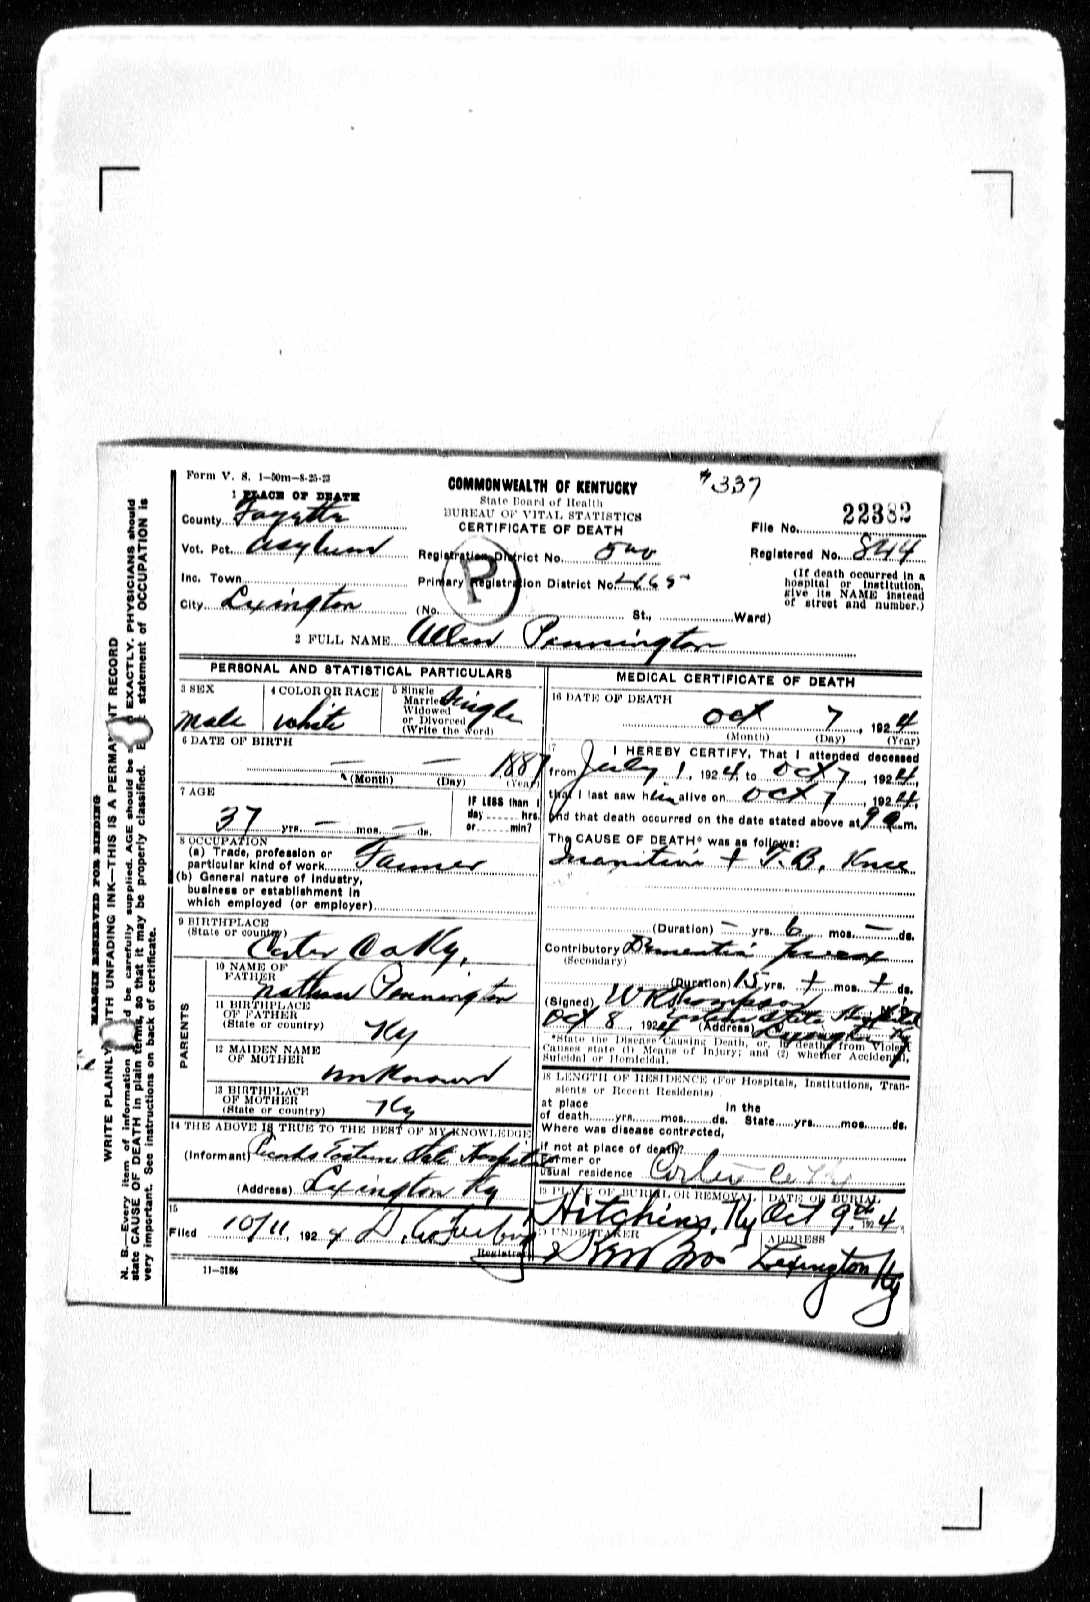 Form V. S. 1-50m-8-25-23
COMMONWEALTH OF KENTUCKY
State Board of Health
BUREAU OF VITAL STATISTICS
CERTIFICATE OF DEATH
#337
File No. 22382
Registered No. 844
(If death occurred in a
hospital or institution,
give its NAME instead
of street and number.)
1 PLACE OF DEATH
County Fayette
Vot. Pct. Asylum
Registration District No.
Inc. Town
Primary Registration District No.
P
City Lexington
(No. St., Ward)
2 FULL NAME Allen Pennington
PERSONAL AND STATISTICAL PARTICULARS
3 SEX
Male
4 COLOR OR RACE
White
5 Single
Married
Widowed
or Divorced
(Write the word)
Single
6 DATE OF BIRTH
— — 1887
(Month) (Day) (Year)
7 AGE
37 yrs. — mos. — ds.
IF LESS than 1
day hrs.
or min?
8 OCCUPATION
(a) Trade, profession or
particular kind of work Farmer
(b) General nature of industry,
business or establishment in
which employed (or employer)
9 BIRTHPLACE
(State or country)
Carter Co Ky.
PARENTS
10 NAME OF
FATHER
Nathan Pennington
11 BIRTHPLACE
OF FATHER
(State or country)
Ky
12 MAIDEN NAME
OF MOTHER
unknown
13 BIRTHPLACE
OF MOTHER
(State or country)
Ky
14 THE ABOVE IS TRUE TO THE BEST OF MY KNOWLEDGE
(Informant) Records Eastern State Hospital
(Address) Lexington Ky
15
Filed 10/11, 1924
Registrar
11-3184
MEDICAL CERTIFICATE OF DEATH
16 DATE OF DEATH
Oct 7, 1924
(Month) (Day) (Year)
17 I HEREBY CERTIFY, That I attended deceased
from July 1, 1924, to Oct 7, 1924,
that I last saw him alive on Oct 7, 1924,
and that death occurred on the date stated above at 9 a.m.
The CAUSE OF DEATH* was as follows:
Inanition + T.B. Knee
(Duration) — yrs. 6 mos. — ds.
Contributory Dementia Precox
(Secondary)
(Duration) 15 yrs. + mos. + ds.
(Signed) W R Thompson
Oct 8, 1924 (Address) Eastern State Hospital
Lexington Ky
*State the Disease Causing Death, or, in deaths from Violent
Causes state (1) Means of Injury; and (2) whether Accidental,
Suicidal or Homicidal.
18 LENGTH OF RESIDENCE (For Hospitals, Institutions, Tran-
sients or Recent Residents)
at place In the
of death yrs. mos. ds. State yrs. mos. ds.
Where was disease contracted,
if not at place of death?
Former or
usual residence Carter Co Ky
19 PLACE OF BURIAL OR REMOVAL
Hitchins, Ky
DATE OF BURIAL
Oct 9th 1924
20 UNDERTAKER
Kerr Bros
ADDRESS
Lexington Ky
MARGIN RESERVED FOR BINDING
WRITE PLAINLY WITH UNFADING INK—THIS IS A PERMANENT RECORD
N. B.—Every item of information should be carefully supplied. AGE should be stated EXACTLY. PHYSICIANS should
state CAUSE OF DEATH in plain terms, so that it may be properly classified. Exact statement of OCCUPATION is
very important. See instructions on back of certificate.